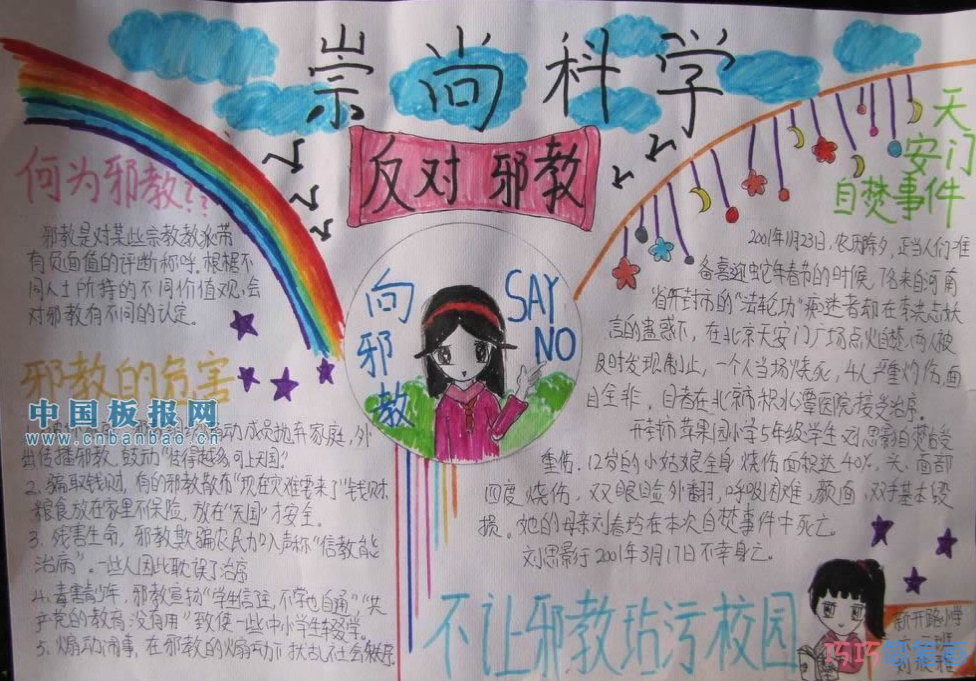 崇尚科学
反对 邪教
何为邪教??
邪教是对某些宗教教派带
有负面值的评断称呼,根据不
同人士所持的不同价值观,会
对邪教有不同的认定。
邪教的危害
中国板报网
www.cnbanbao.cn
动成员抛弃家庭,外
出传播邪教,鼓动"传得越多可上天国"
2、骗取钱财,有的邪教散布"现在灾难害来了"钱财
粮食放在家里不保险,放在"天国"才安全。
3、残害生命,邪教欺骗农民加入声称"信教能
治病"。一些人因此耽误了治疗
4、毒害青少年,邪教宣扬"学生信主,不学也自通","共
产党的教育没有用"致使一些中小学生辍学。
5、煽动闹事,在邪教的煽动下扰乱社会秩序
向邪教
SAY
NO
天
安门
自焚事件
2001年1月23日,农历除夕,正当人们准
备喜迎蛇年春节的时候,7名来自河南
省开封市的"法轮功"痴迷者却在李洪志妖
言的蛊惑下,在北京天安门广场点火自焚,两人被
及时发现制止,一个人当场烧死,4人严重灼伤,面
目全非,目者在北京市积水潭医院接受治疗。
开封市苹果园小学5年级学生刘思影自焚后受
重伤。12岁的小姑娘全身烧伤面积达40%,头、面部
四度烧伤,双眼睑外翻,呼吸困难,颜面、双手基本毁
损。她的母亲刘春玲在本次自焚事件中死亡。
刘思影于2001年3月17日不幸身亡。
不让邪教玷污校园
新开路小学
巧巧简笔画